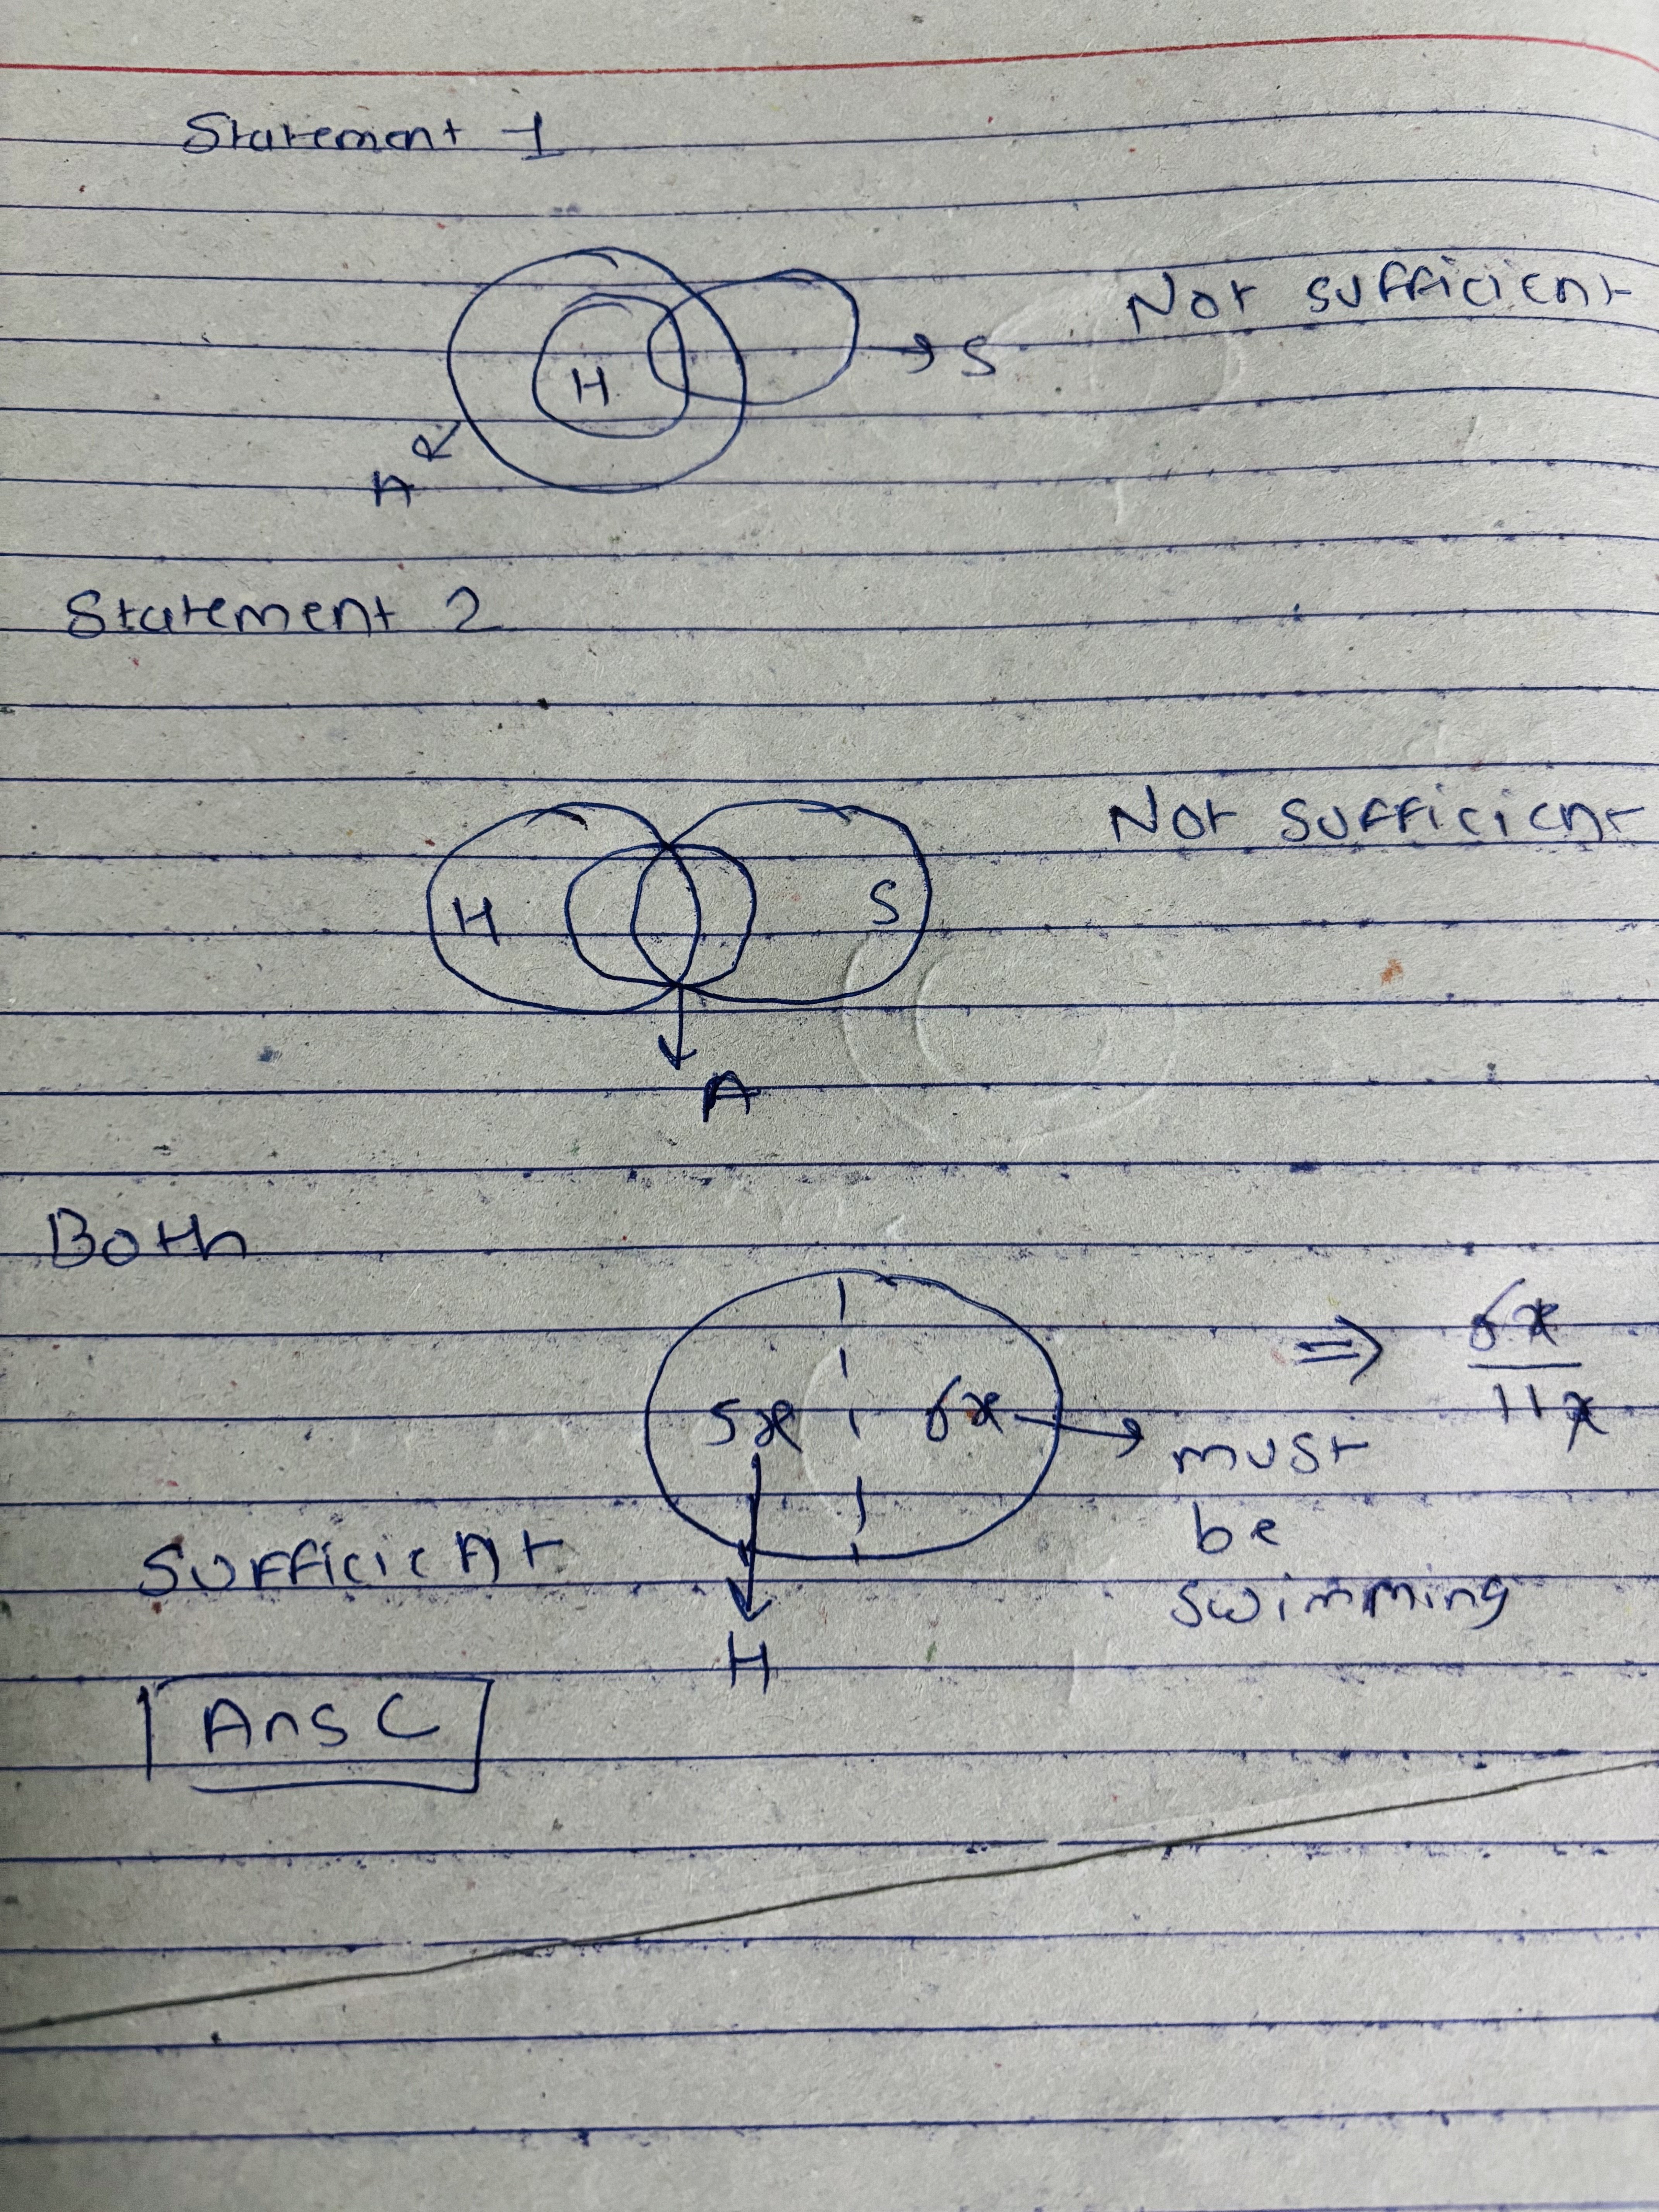 Statement 1
Not sufficient
H
→ S
A
Statement 2
Not sufficient
H
S
A
Both
5x
6x
⇒ 6x/11x
must
be
swimming
Sufficient
H
Ans C